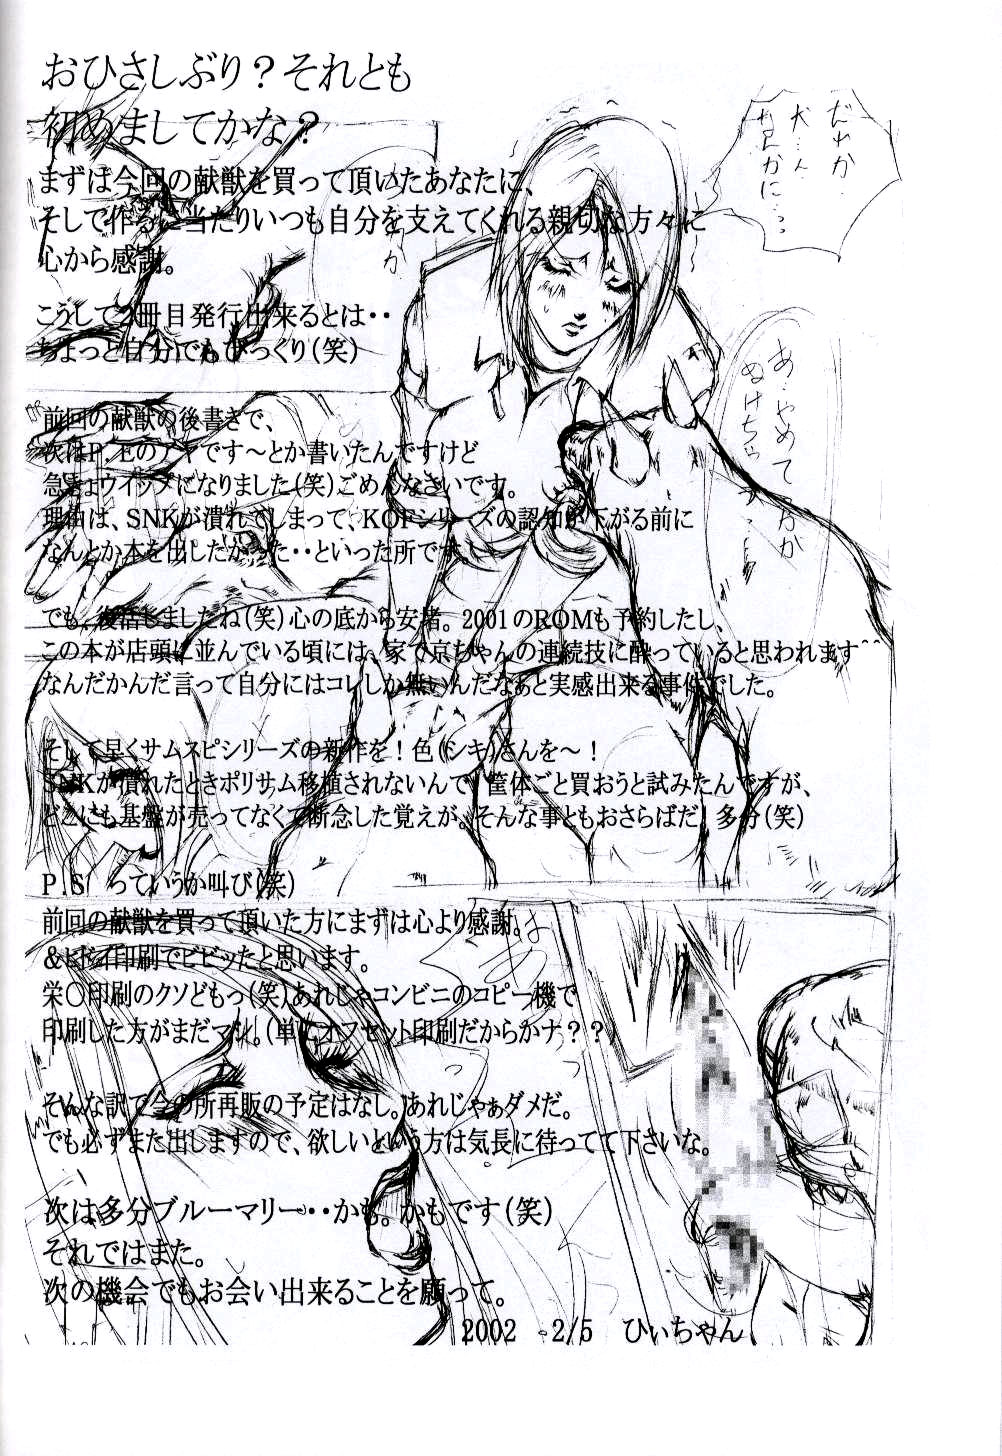 おひさしぶり？それとも
初めましてかな？
まずは今回の献獣を買って頂いたあなたに、
そして作るに当たりいつも自分を支えてくれる親切な方々に
心から感謝。
こうして2冊目発行出来るとは・・
ちょっと自分でもびっくり(笑)
前回の献獣の後書きで、
次はP.Eのアヤです～とか書いたんですけど
急きょウィップになりました(笑)ごめんなさいです。
理由は、SNKが潰れてしまって、KOFシリーズの認知が下がる前に
なんとか本を出したかった・・といった所です。
でも、復活しましたね(笑)心の底から安堵。2001のROMも予約したし、
この本が店頭に並んでいる頃には、家で京ちゃんの連続技に酔っていると思われます^^
なんだかんだ言って自分にはコレしか無いんだなぁと実感出来る事件でした。
そして早くサムスピシリーズの新作を！色(シキ)さんを～！
SNKが潰れたときポリサム移植されないんで、筐体ごと買おうと試みたんですが、
どこにも基盤が売ってなくて断念した覚えが。そんな事ともおさらばだ。多分(笑)
P.S　っていうか叫び(笑)
前回の献獣を買って頂いた方にまずは心より感謝。
＆ヒドイ印刷でビビッたと思います。
栄〇印刷のクソどもっ(笑)あれじゃコンビニのコピー機で
印刷した方がまだマシ。(単にオフセット印刷だからかナ？？)
そんな訳で今の所再販の予定はなし。あれじゃぁダメだ。
でも必ずまた出しますので、欲しいという方は気長に待ってて下さいな。
次は多分ブルーマリー・・かも。かもです(笑)
それではまた。
次の機会でもお会い出来ることを願って。
2002　2/5　ひぃちゃん
だれか…
あ…やめて…